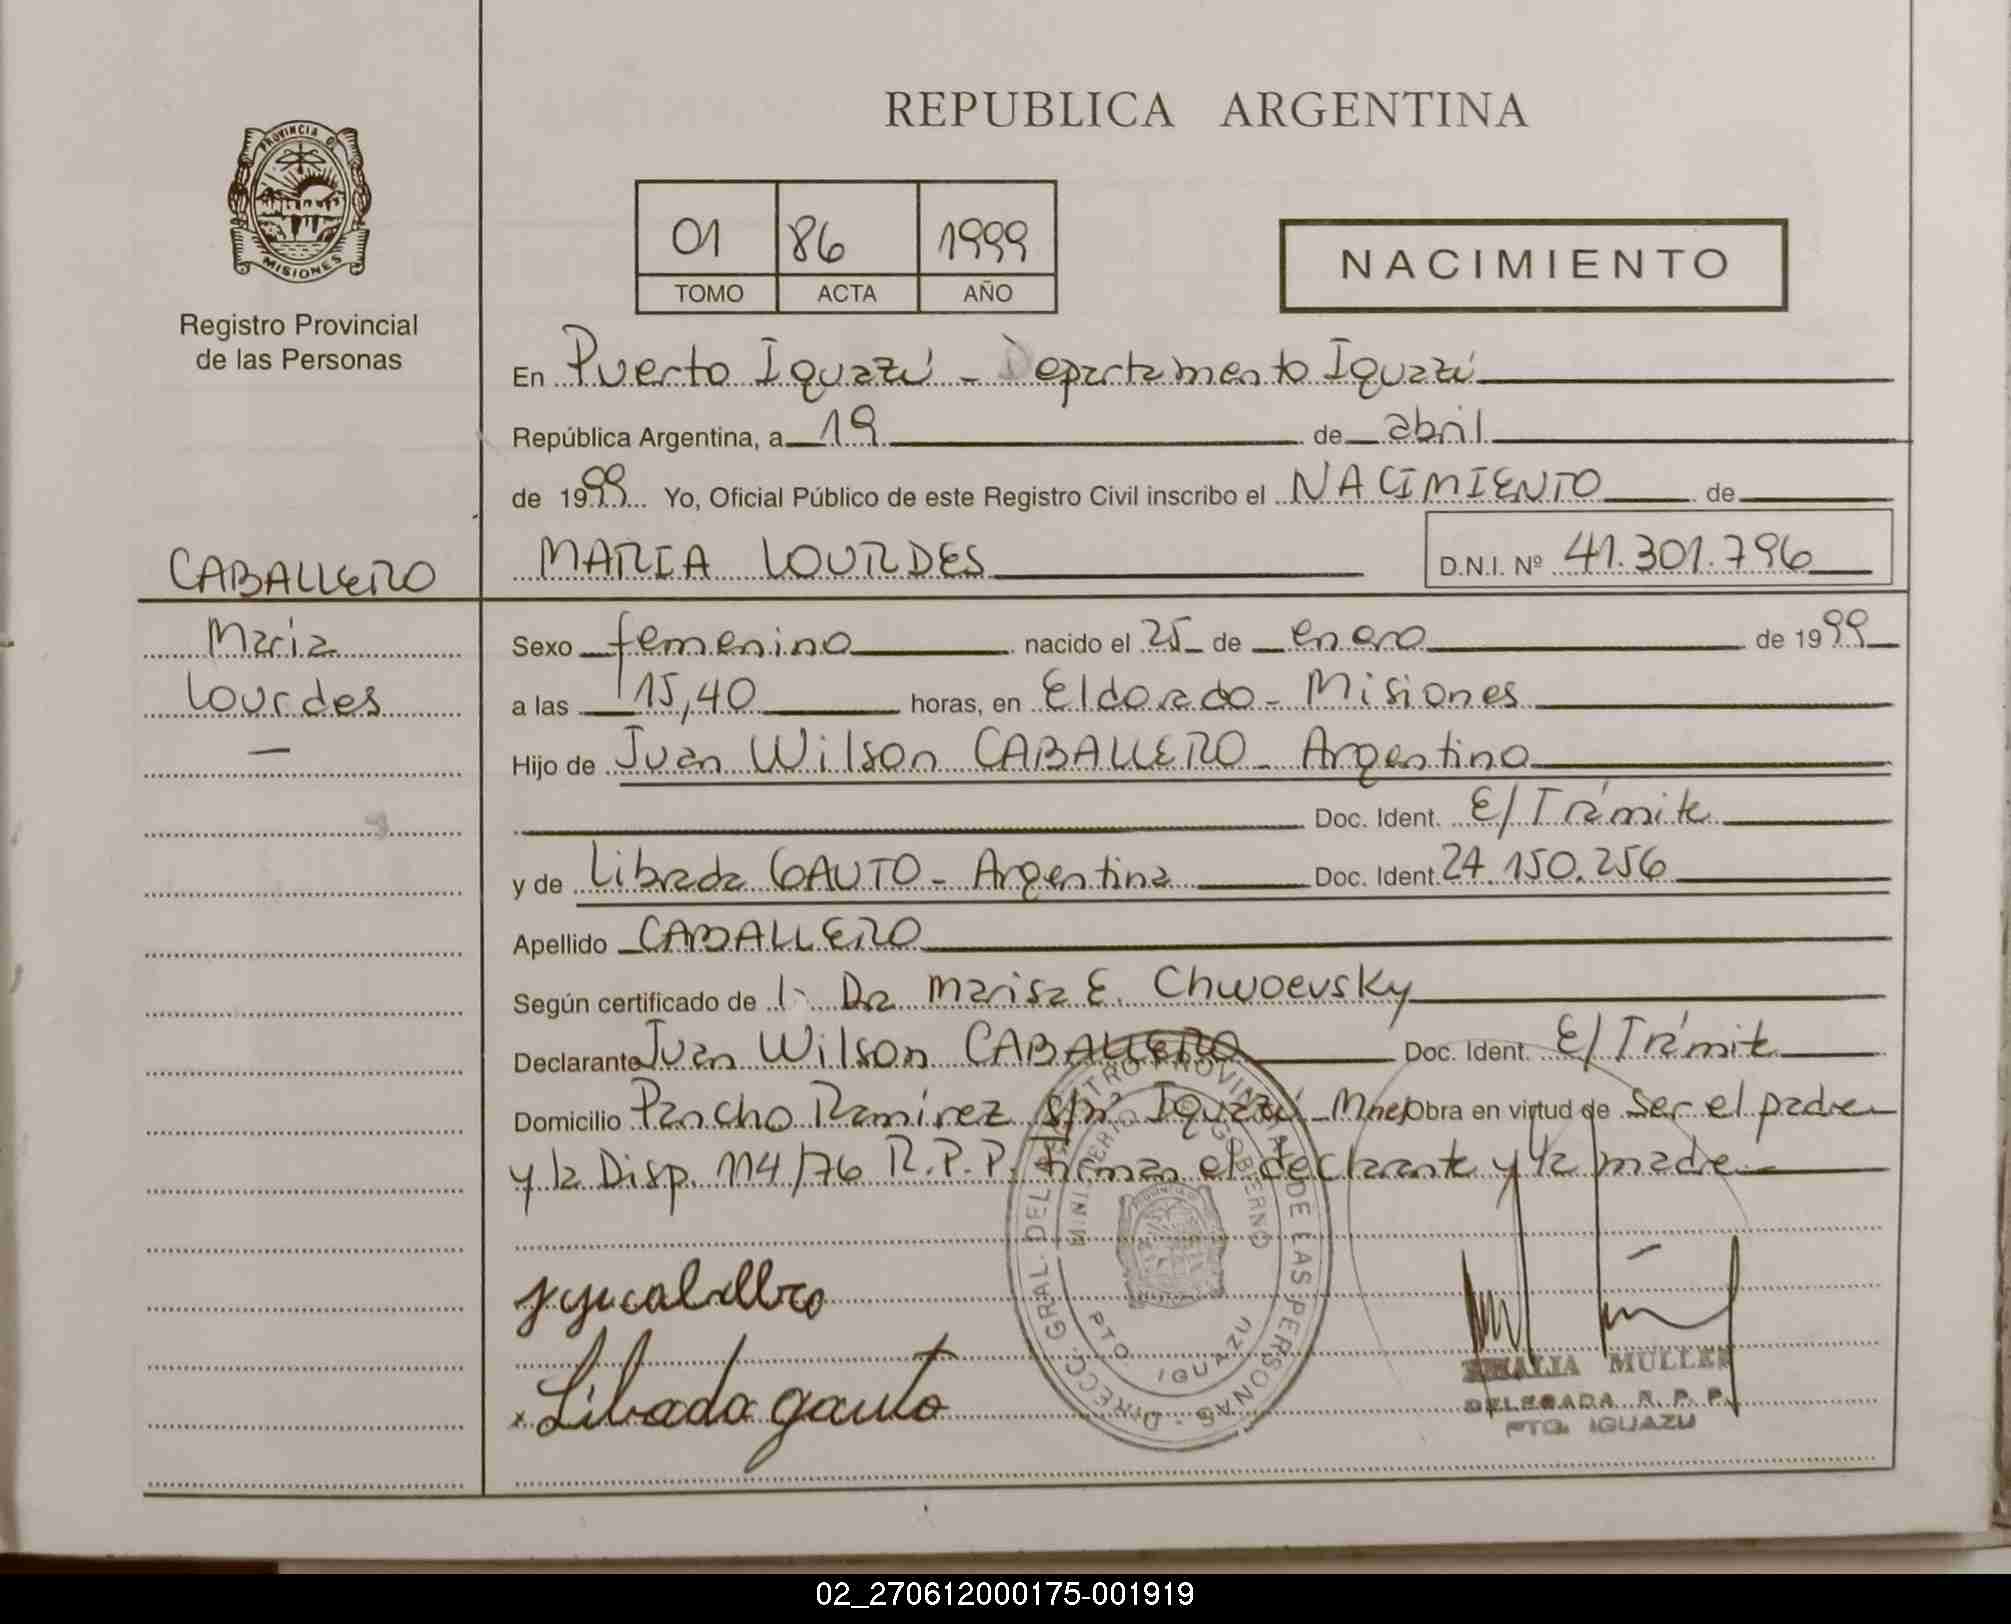 REPUBLICA ARGENTINA
PROVINCIA DE
MISIONES
Registro Provincial
de las Personas
01 86 1999
TOMO ACTA AÑO
NACIMIENTO
En Puerto Iguazú - Departamento Iguazú
República Argentina, a 19 de abril
de 1999 Yo, Oficial Público de este Registro Civil inscribo el NACIMIENTO de
CABALLERO
MARIA LOURDES
D.N.I. Nº 41.301.796
Maria
Lourdes
—
Sexo femenino nacido el 25 de enero de 1999
a las 15,40 horas, en Eldorado - Misiones
Hijo de Juan Wilson CABALLERO - Argentino
Doc. Ident. E/Trámite
y de Librada GAUTO - Argentina Doc. Ident. 24.150.256
Apellido CABALLERO
Según certificado de Dra Marisa E. Chwoevsky
Declarante Juan Wilson CABALLERO Doc. Ident. E/Trámite
Domicilio Pancho Ramírez s/nº Iguazú - Mnes Obra en virtud de ser el padre
y la Disp. 114/76 R.P.P. Firman el declarante y la madre
DIRECC. GRAL. DEL REGISTRO PROVINCIAL DE LAS PERSONAS -
MINISTERIO GOBIERNO
PTO IGUAZU
x Librada gauto
MULLER
DELEGADA R. P. P.
PTO. IGUAZU
02_270612000175-001919